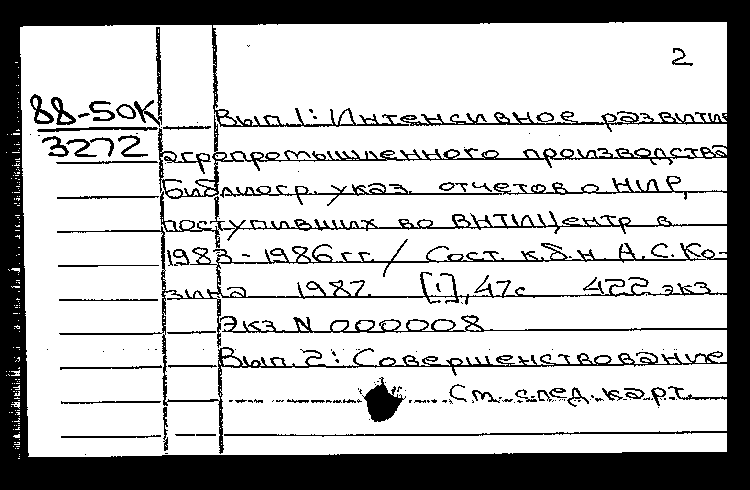 2
88-50К
3272
Вып.1: Интенсивное развитие
агропромышленного производства
библиогр. указ. отчетов о НИР,
поступивших во ВНТИЦентр в
1983-1986 гг. / Сост. к.б.н. А.С. Ко-
зина 1987. [1], 47с. 422 экз
Экз. N 000008.
Вып. 2: Совершенствование
См. след. карт.